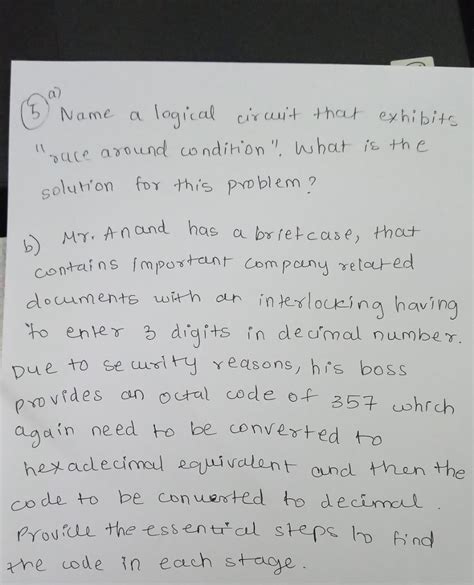 3 a) Name a logical circuit that exhibits
"race around condition". What is the
solution for this problem?
b) Mr. Anand has a briefcase, that
contains important company related
documents with an interlocking having
to enter 3 digits in decimal number.
Due to security reasons, his boss
provides an octal code of 357 which
again need to be converted to
hexadecimal equivalent and then the
code to be converted to decimal.
Provide the essential steps to find
the code in each stage.